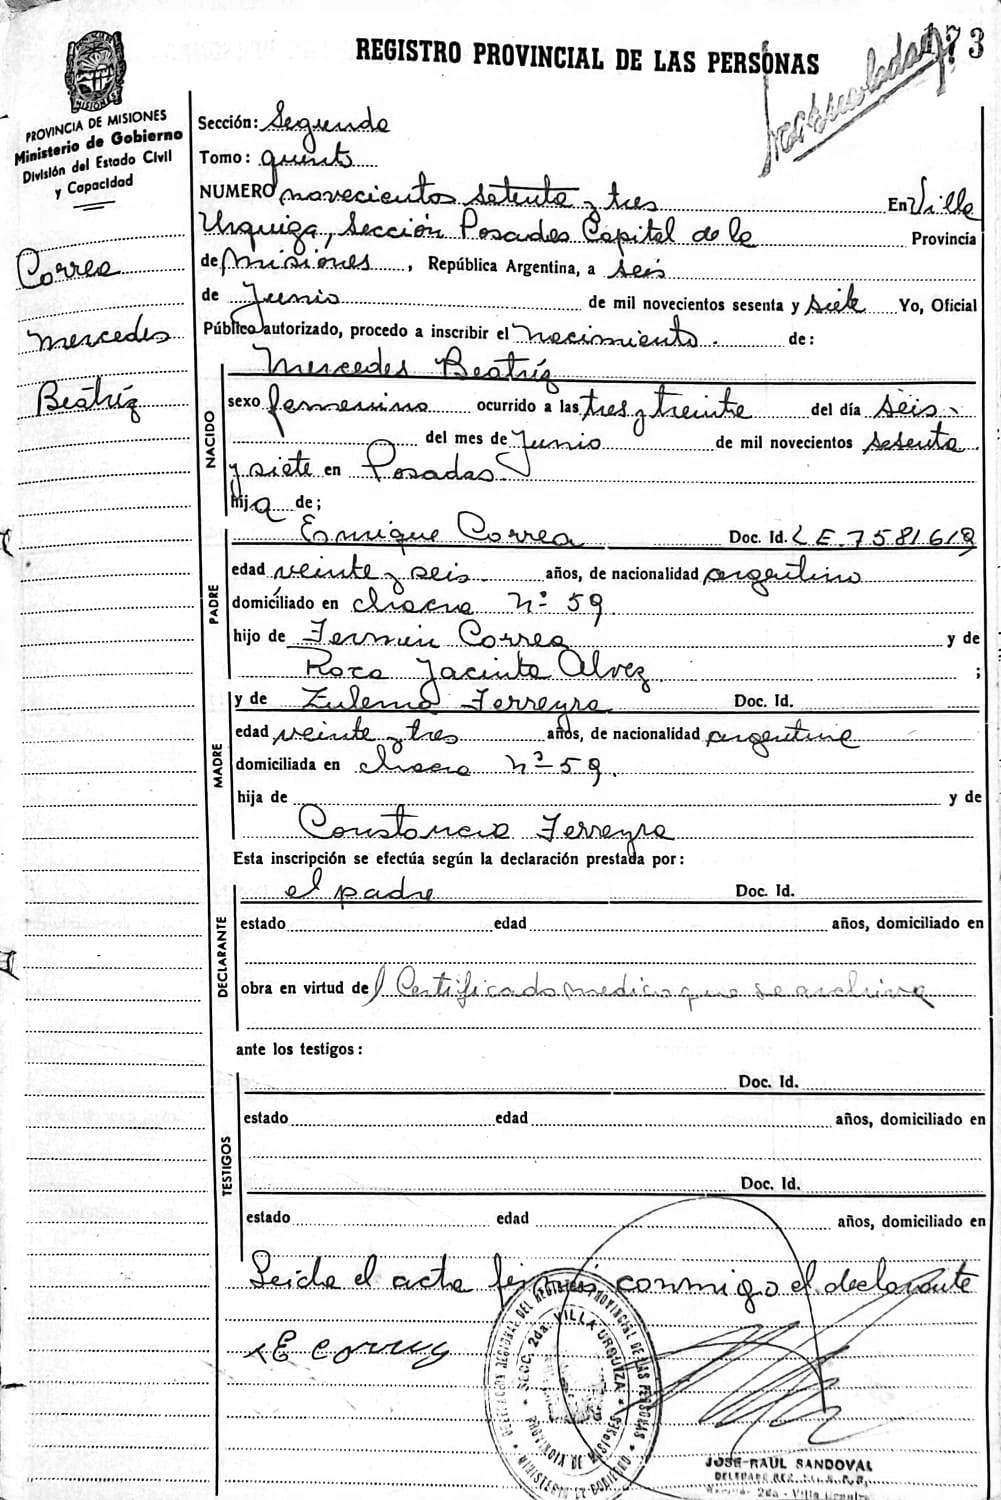 REGISTRO PROVINCIAL DE LAS PERSONAS
173
MISIONES
PROVINCIA DE MISIONES
Ministerio de Gobierno
División del Estado Civil
y Capacidad
Correa
Mercedes
Beatríz
Sección: Segunda
Tomo: quinto
NUMERO novecientos setenta y tres En Villa
Urquiza, Sección Posadas Capital de la Provincia
de Misiones, República Argentina, a seis
de Junio de mil novecientos sesenta y siete Yo, Oficial
Público autorizado, procedo a inscribir el nacimiento. de:
NACIDO
Mercedes Beatríz
sexo femenino ocurrido a las tres y treinta del día seis
del mes de Junio de mil novecientos sesenta
y siete en Posadas
hija de;
PADRE
Enrique Correa Doc. Id. L E. 7581619
edad veinte y seis años, de nacionalidad argentino
domiciliado en chacra Nº 59
hijo de Fermin Correa y de
Roca Jacinta Alvez ;
MADRE
y de Zulema Ferreyra Doc. Id.
edad veinte y tres años, de nacionalidad argentina
domiciliada en chacra Nº 59.
hija de y de
Constancia Ferreyra
Esta inscripción se efectúa según la declaración prestada por:
DECLARANTE
el padre Doc. Id.
estado edad años, domiciliado en
obra en virtud del Certificado medico que se archiva
ante los testigos:
TESTIGOS
Doc. Id.
estado edad años, domiciliado en
Doc. Id.
estado edad años, domiciliado en
Leida el acta conmigo el declarante
E Correa
SECC. 2da. VILLA URQUIZA
REGISTRO PROVINCIAL DE LAS PERSONAS
JOSE RAUL SANDOVAL
2da - Villa Urquiza